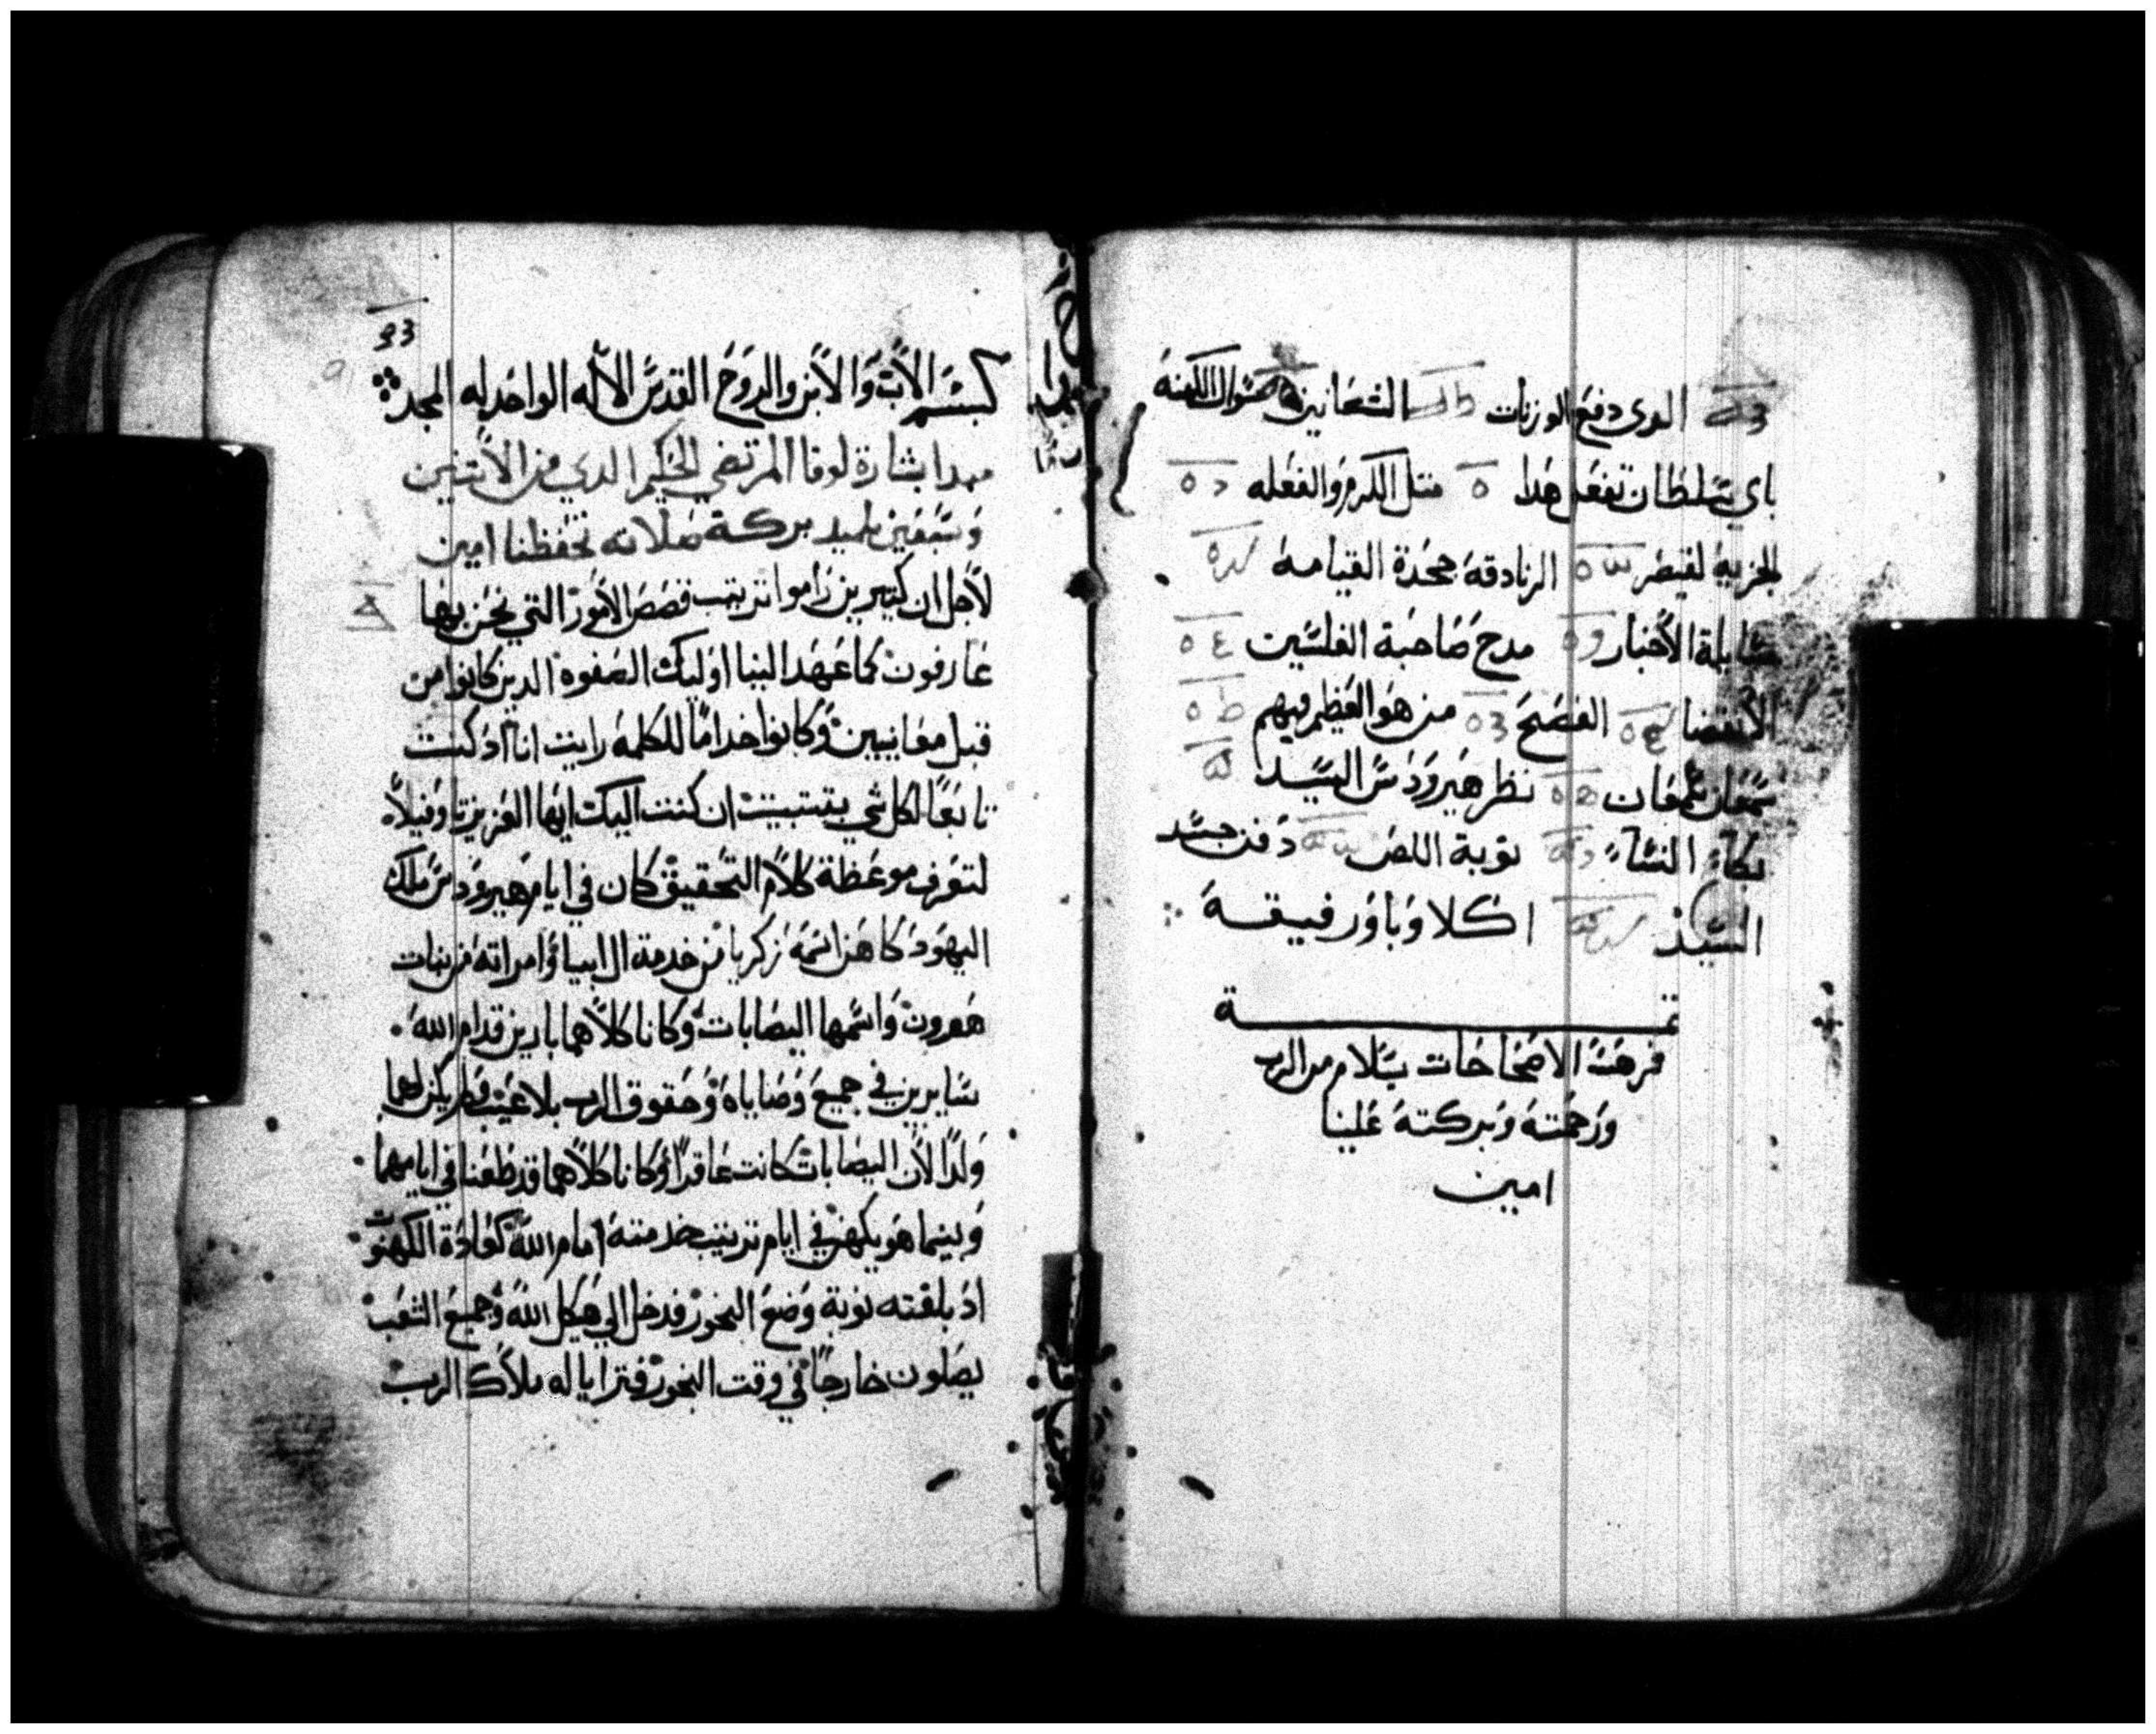 الدى دفع الوزنات الشعانين سوال الكهنة
باي سلطان تفعل هدا متل الكرم والفعله
الجزيه لقيصر الزنادقه جحدة القيامه
مسايلة الأحبار مدح صاحبة الفلسين
الأنقضا الفصح من هو العظيم فيهم
سمعان سمعان نظر هيرودس السيد
بكاء النساء توبة اللص دفن جسد
السيد اكلاوباور فيقه
تمة
فهرست الاصحاحات بسلام من الرب
ورحمته وبركته علينا
امين
بسم الأب والأبن والروح القدس الأله الواحد له المجد
مبدا بشارة لوقا المرتضي الحكيم الدي من الأتنين
وسبعين تلميد بركة صلاته تحفظنا امين
لأجل ان كتيرين راموا ترتيب قصص الأمور التي نحن بها
عارفون كما عهد الينا اوليك الصفوه الدين كانوا من
قبل معاينيين وكانوا خداما للكلمه رايت انا اد كنت
تابعا لكل شي بتتبيت ان كتبت اليك ايها العزيز تاوفيلا
لتعرف موعظة كلام التحقيق كان في ايام هيرودس ملك
اليهود كاهن اسمه زكريا من خدمة ال ابيا وامراته من بنات
هرون واسمها اليصابات وكانا كلاهما بارين قدام الله
سايرين في جميع وصاياه وحقوق الرب بلا عيب ولم يكن لهما
ولدا لأن اليصابات كانت عاقرا وكانا كلاهما قد طعنا في ايامهما
وبينما هو يكهن في ايام ترتيب خدمته امام الله كعادة الكهنوت
اد بلغته نوبة وضع البخور فدخل الي هيكل الله وجميع الشعب
يصلون خارجا في وقت البخور فترايا له ملاك الرب